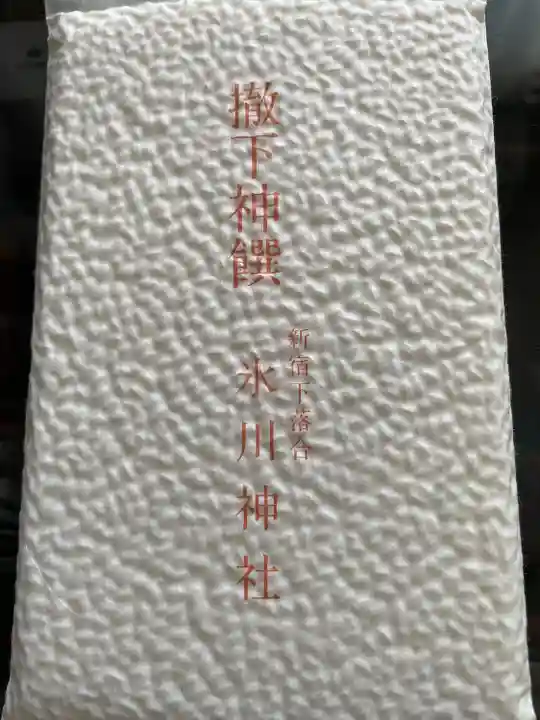 撤下神饌
新宿下落合
氷川神社